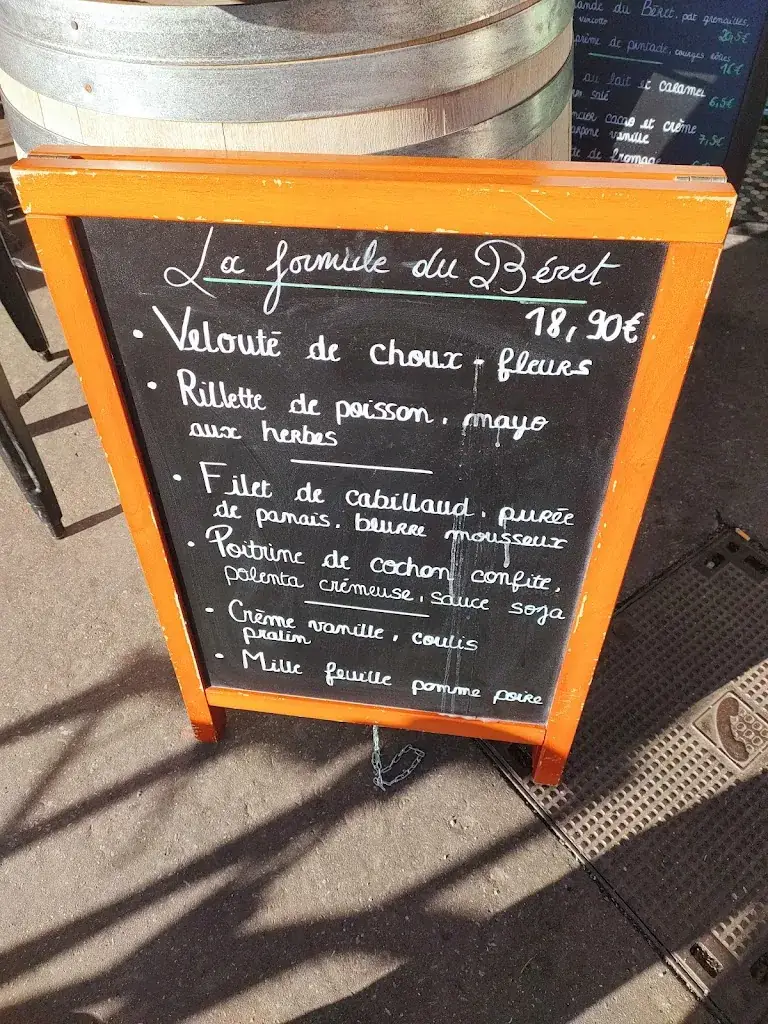 du Béret, pdt grenailles,
20,5€
de pintade, courges rôties
16€
au lait et caramel
salé
6,5€
cacao et crème
vanille
7,5€
de fromage
La formule du Béret
18,90€
• Velouté de choux-fleurs
• Rillette de poisson, mayo
aux herbes
• Filet de cabillaud, purée
de panais, beurre mousseux
• Poitrine de cochon confite,
polenta crémeuse, sauce soja
• Crème vanille, coulis
pralin
• Mille feuille pomme poire